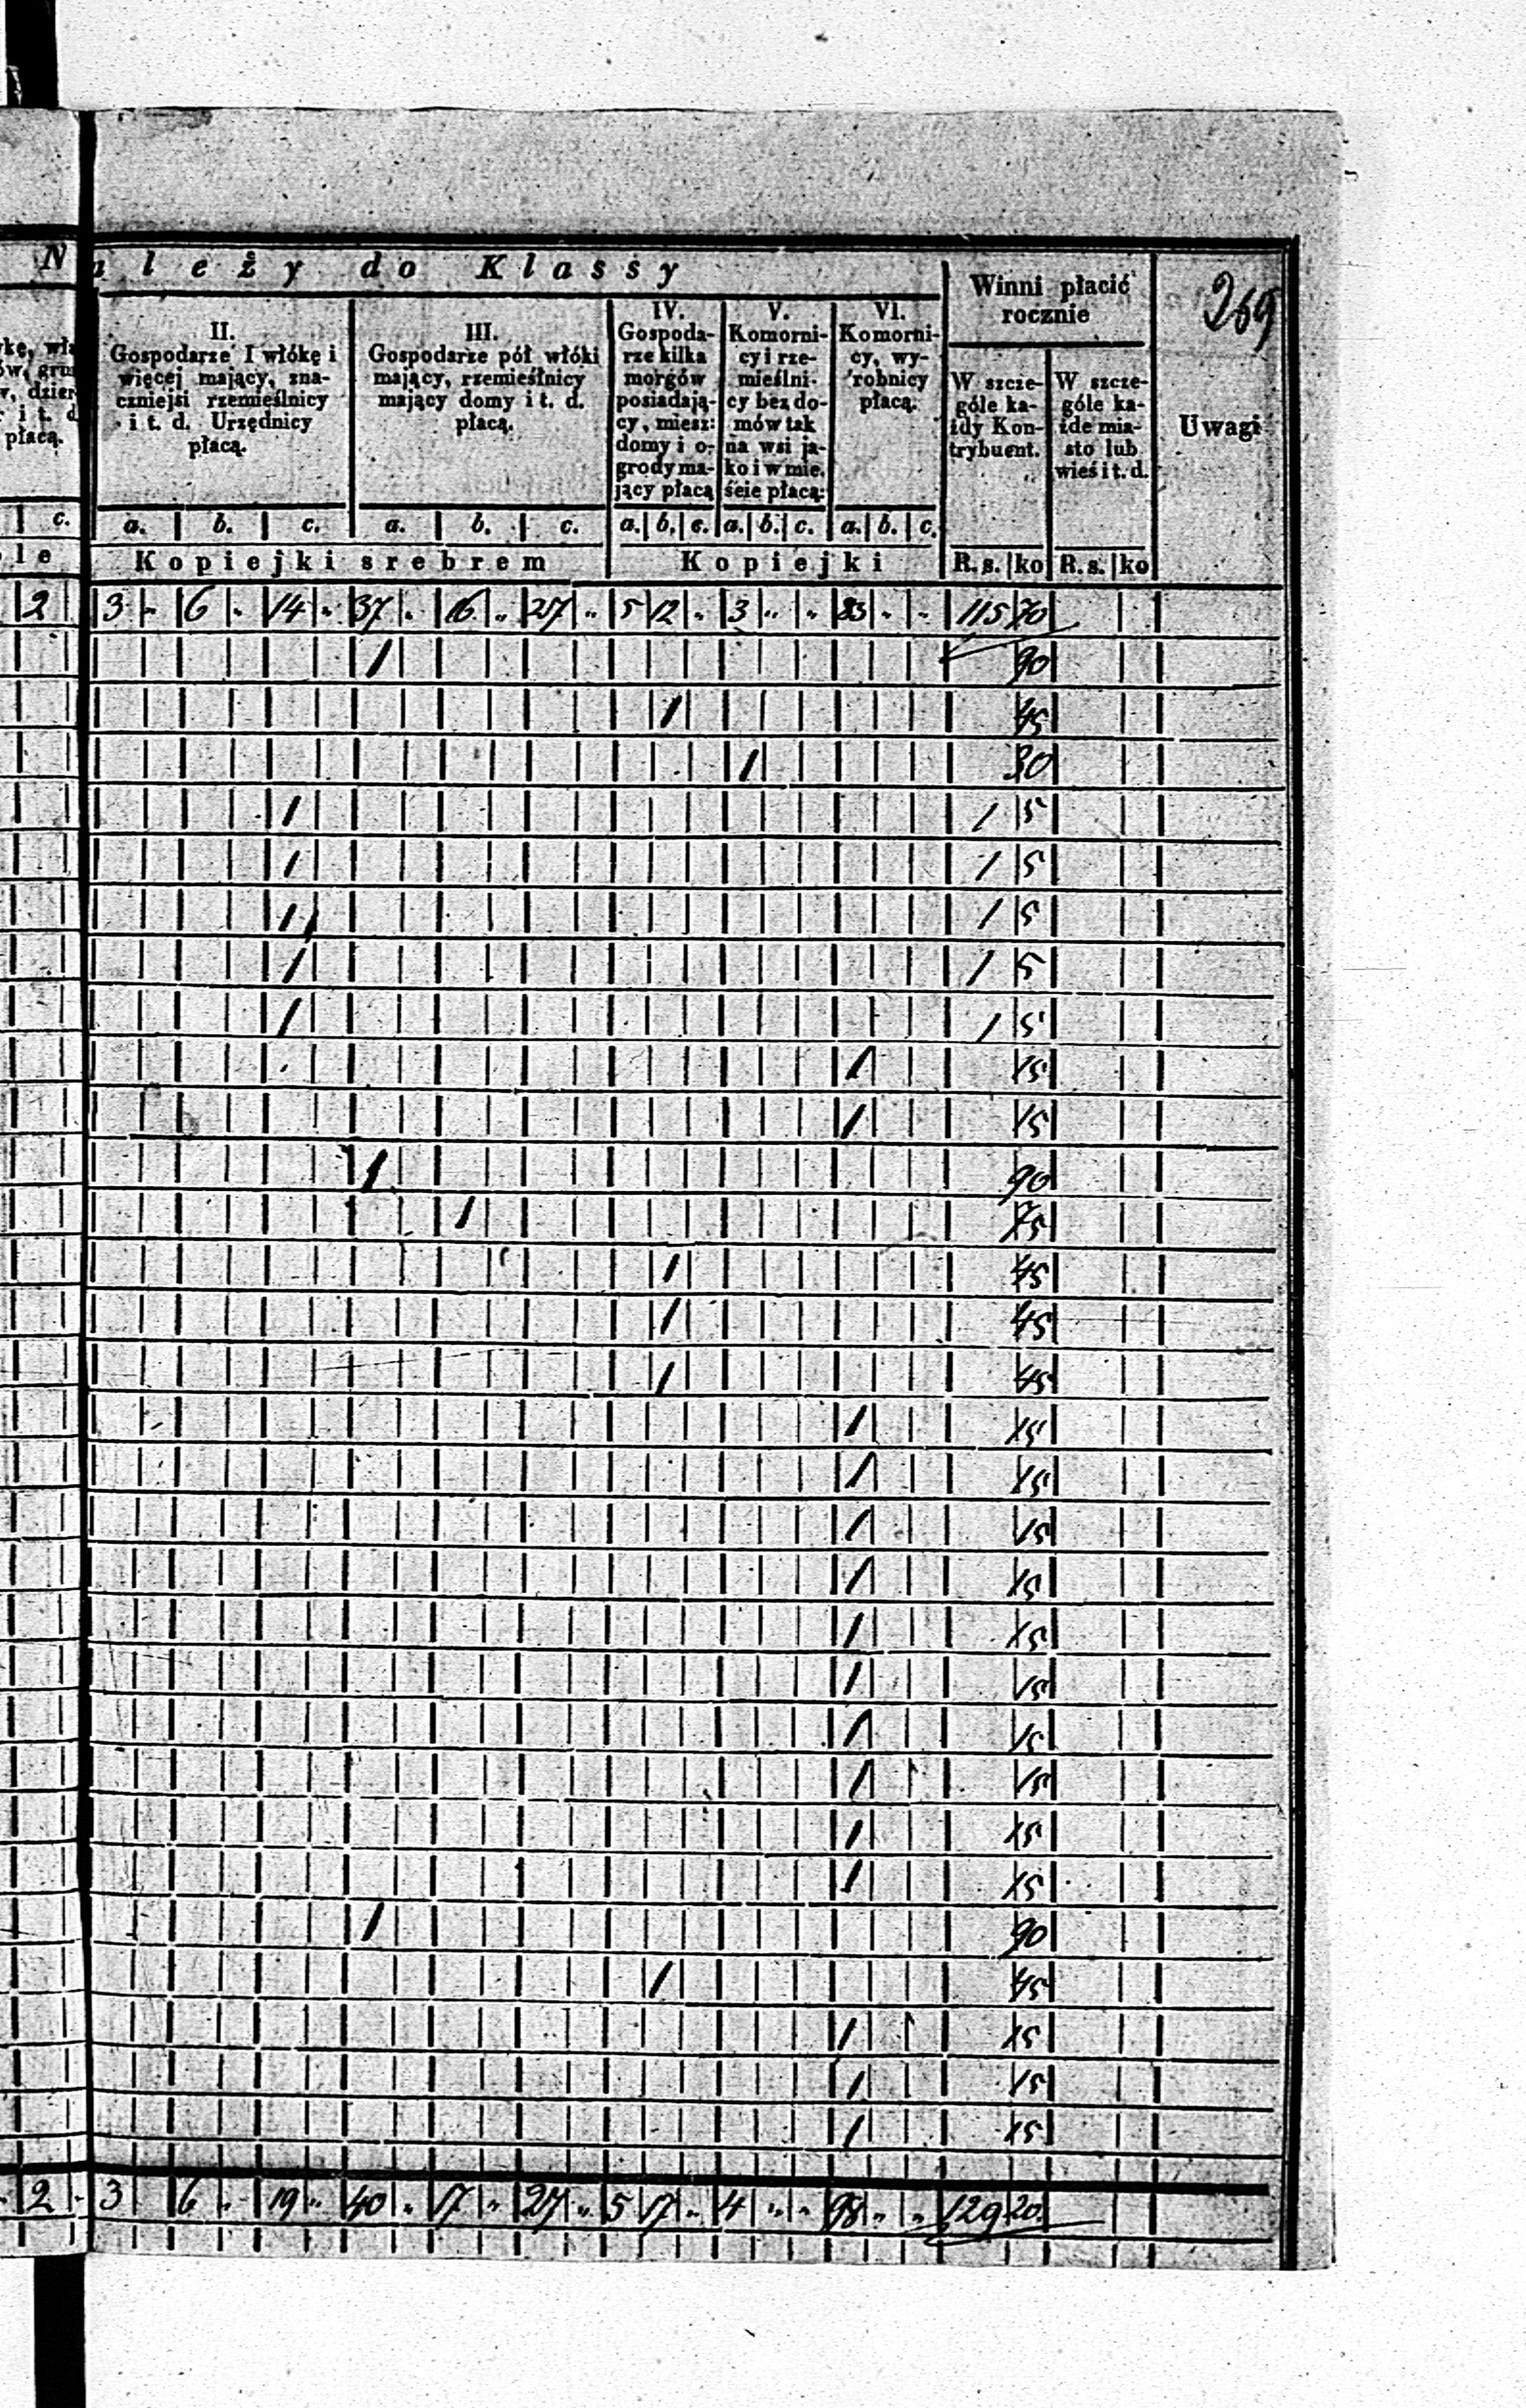 269
N ależy do Klassy
Winni płacić rocznie
Uwagi
płacą.
II. Gospodarze I włókę i więcej mający, znaczniejsi rzemieślnicy i t. d. Urzędnicy płacą.
III. Gospodarze pół włóki mający, rzemieślnicy mający domy i t. d. płacą.
IV. Gospodarze kilka morgów posiadający, miesz: domy i ogrody mający płacą
V. Komornicy i rzemieślnicy bez domów tak na wsi jako i w mieście płacą:
VI. Komornicy, wyrobnicy płacą.
W szczególe każdy Kontrybuent.
W szczególe każde miasto lub wieś i t. d.
c. a. b. c. a. b. c. a. b. c. a. b. c. a. b. c.
le Kopiejki srebrem Kopiejki R.s. ko R.s. ko
2 3 " 6 " 14 " 37 " 16 " 27 " 5 12 " 3 " " 83 " " 115 70
1 90
1 45
1 30
1 1 5
1 1 5
1 1 5
1 1 5
1 1 5
1 15
1 15
1 90
1 75
1 45
1 45
1 45
1 15
1 15
1 15
1 15
1 15
1 15
1 15
1 15
1 15
1 15
1 90
1 45
1 15
1 15
1 15
2 " 3 6 " 19 " 40 " 17 " 27 " 5 17 " 4 " " 98 " " 129 20